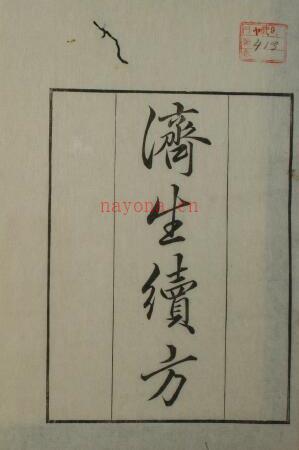 濟生續方
nayona.cn
413